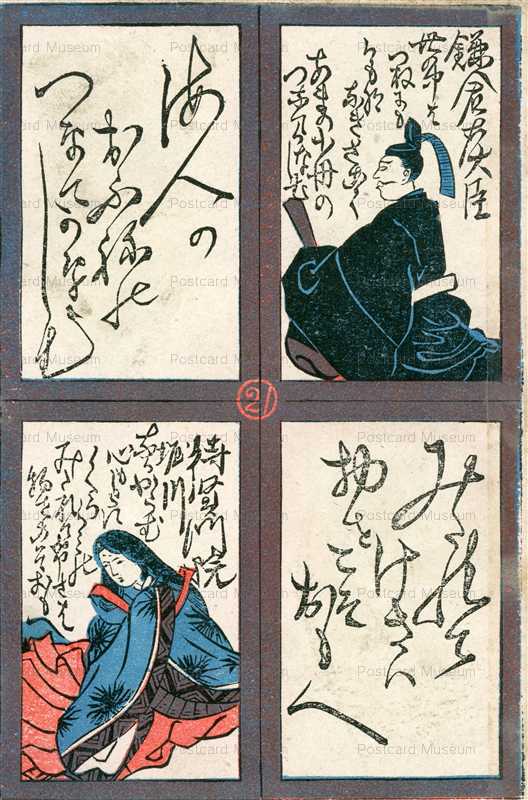 鎌倉右大臣
世の中は
つねにも
かもな なきさこく
あまの小舟の
つなてかなしも
海人の
おふねの
つなてかなしも
21
みたれて
けさハ
物を
こそ
おも
へ
待賢門院
堀川
長からむ
心もしらす
くろかみの
みたれて今朝は
物をこそおもへ
Postcard Museum